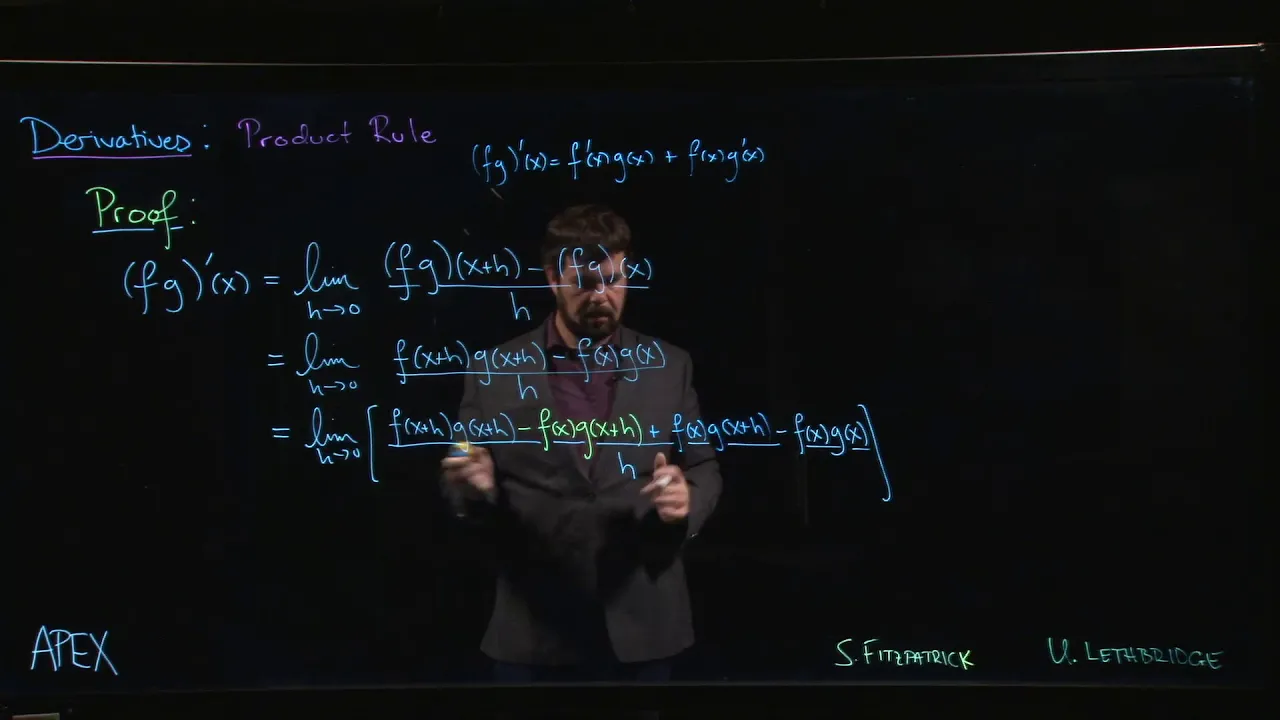 Derivatives: Product Rule
(fg)'(x) = f'(x)g(x) + f(x)g'(x)
Proof:
(fg)'(x) = lim h→0 (fg)(x+h) - (fg)(x) / h
= lim h→0 f(x+h)g(x+h) - f(x)g(x) / h
= lim h→0 [ f(x+h)g(x+h) - f(x)g(x+h) + f(x)g(x+h) - f(x)g(x) / h ]
APEX
S. FITZPATRICK
U. LETHBRIDGE